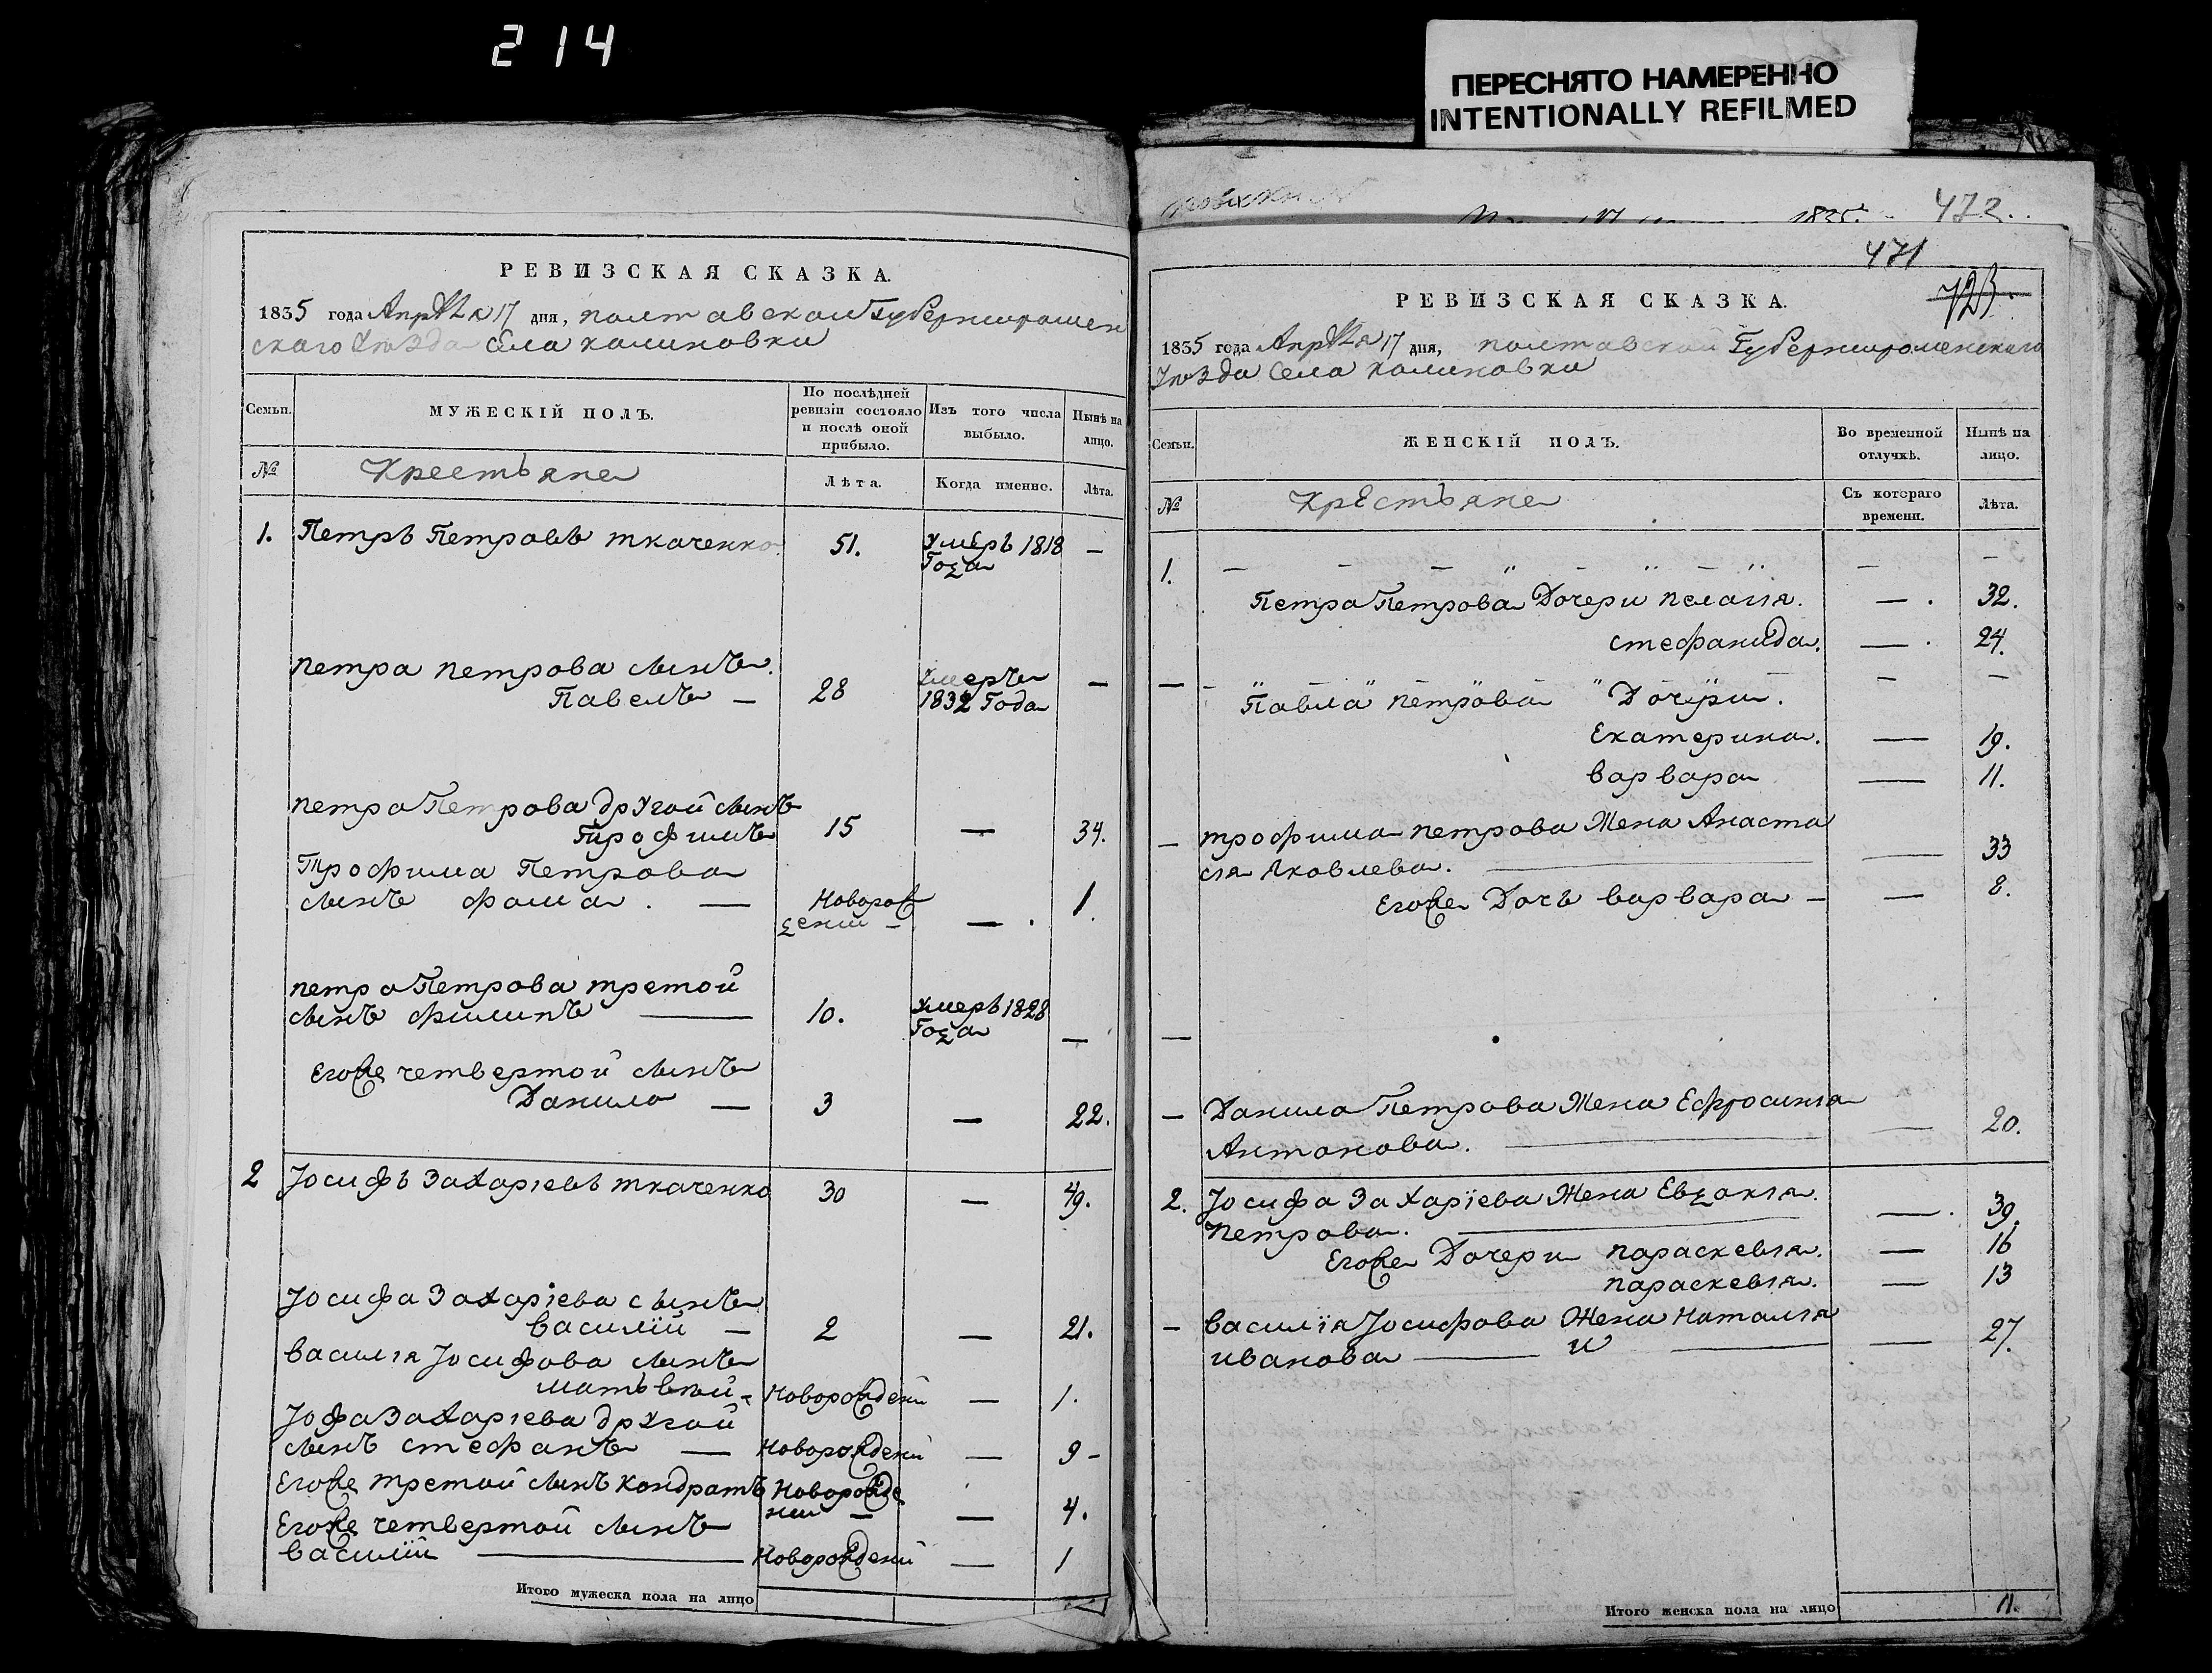 214
ПЕРЕСНЯТО НАМЕРЕННО
INTENTIONALLY REFILMED
РЕВИЗСКАЯ СКАЗКА.
1835 года Апрѣля 17 дня, полтавской Губернироmen
скаго Уѣзда Села калиновки
Семьи.
МУЖЕСКІЙ ПОЛЪ.
По послѣдней ревизіи состояло и послѣ оной прибыло.
Изъ того числа выбыло.
Нынѣ на лицо.
№
Крестьяне
Лѣта.
Когда именно.
Лѣта.
1. Петръ Петровъ ткаченко 51. Умеръ 1818 Года —
петра петрова сынъ
Павелъ — 28 Умеръ 1832 Года —
петра Петрова другой сынъ
Трофимъ 15 — 34.
Трофима Петрова
сынъ фома. — Новорождении — 1.
петра Петрова третой
сынъ филипъ — 10. Умеръ 1828 Года —
Егоже четвертой сынъ
Данило — 3 — 22.
2 Іосифъ Захаріевъ ткаченко 30 — 49.
Іосифа Захаріева сынъ
василій — 2 — 21.
василія Іосифова сынъ
матьвѣй - Новорождени — 1.
Іофа Захаріева другой
сынъ стефанъ — Новорождени — 9 -
Егоже третой сынъ кондратъ Новорождении — 4.
Егоже четвертой сынъ
василій — Новорождени — 1
Итого мужеска пола на лицо
472.
471
723.
РЕВИЗСКАЯ СКАЗКА.
1835 года Апрѣля 17 дня, полтавской Губернироменскаго
Уѣзда Села калиновки
Семьи.
ЖЕНСКІЙ ПОЛЪ.
Во временной отлучкѣ.
Нынѣ на лицо.
№
Крестьяне
Съ котораго времени.
Лѣта.
1. — — — " — " — " — —
Петра Петрова Дочери пелагія. — . 32.
стефанида. — . 24.
— Павла петрова Дочери. — —
Екатерина. — 19.
варвара — 11.
— трофима петрова Жена Анаста
сія Яковлева. — 33
Егоже Дочь варвара — — 8.
—
— Данила Петрова Жена Ефросинія
Антонова. — 20.
2. Іосифа Захаріева Жена Евдокія.
петрова. — . 39.
Егоже Дочери параскевія. — 16
параскевія. — 13
— василія Іосифова Жена Наталія
иванова — и — — 27.
Итого женска пола на лицо 11.